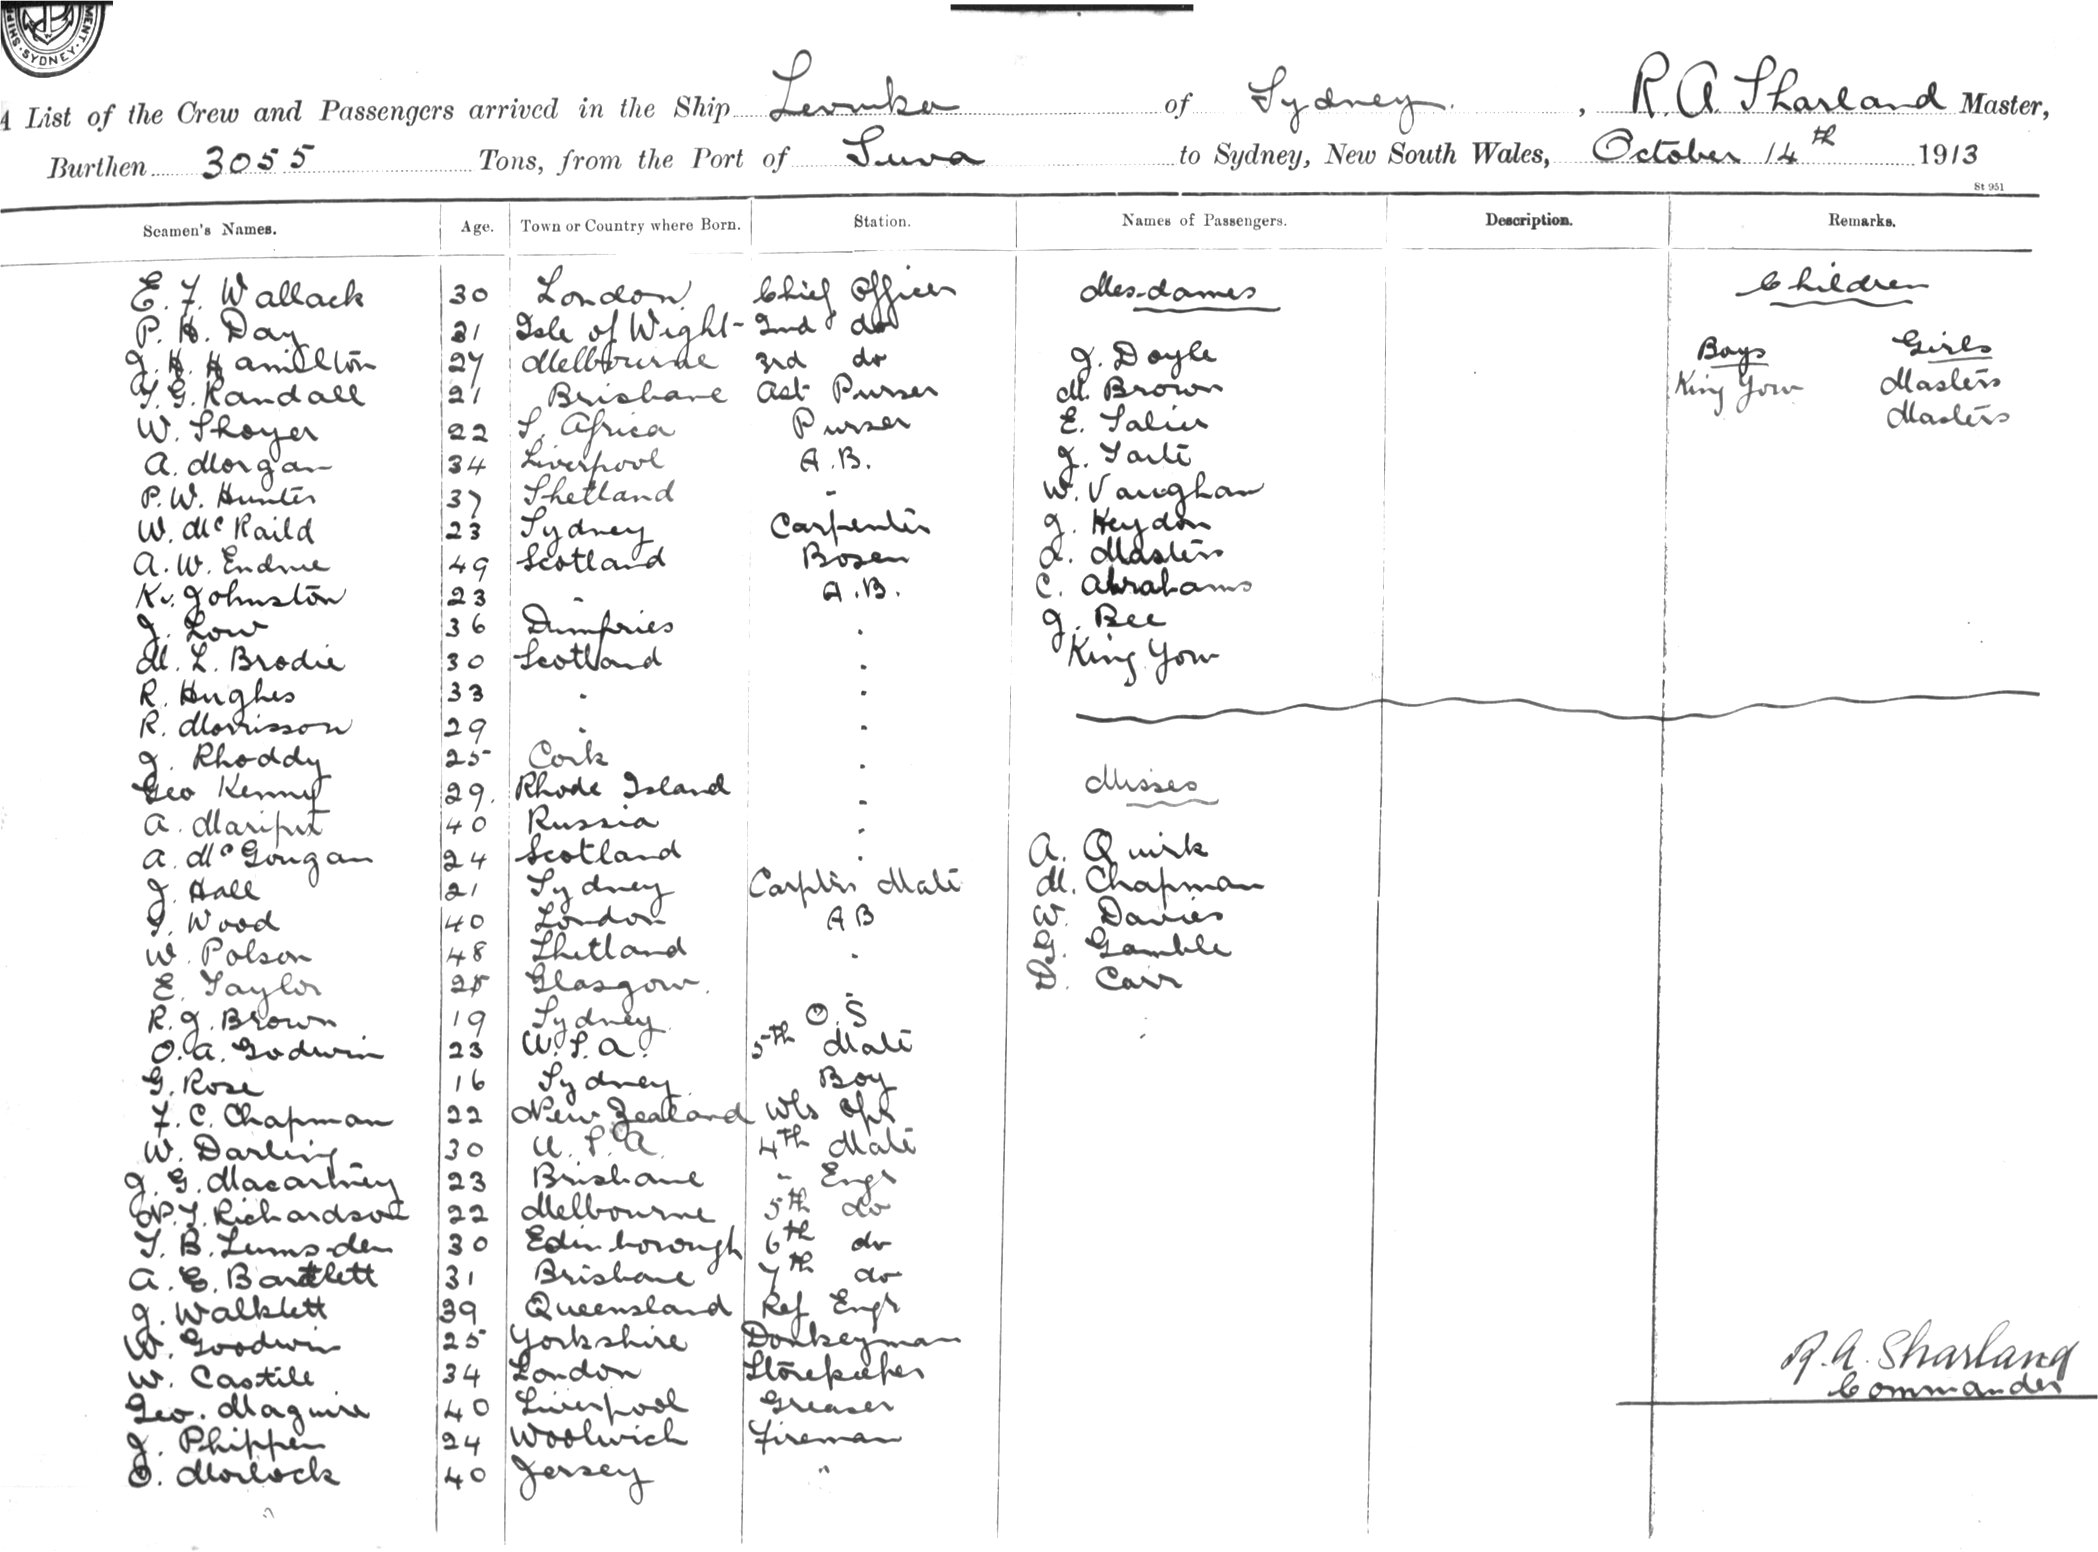 SHIP MENT · SYDNEY ·
A List of the Crew and Passengers arrived in the Ship Levuka of Sydney. , R. A. Sharland Master,
Burthen 3055 Tons, from the Port of Suva to Sydney, New South Wales, October 14th 1913
St 951
Seamen's Names. Age. Town or Country where Born. Station. Names of Passengers. Description. Remarks.
E. F. Wallack 30 London Chief Officer Mesdames Children
P. H. Day 31 Isle of Wight - 2nd do
J. H. Hamilton 27 Melbourne 3rd do J. Doyle Boys Girls
T. G. Randall 21 Brisbane Ast Purser M. Brown King Yow Masters
W. Thoyer 22 S. Africa Purser E. Salier Masters
A. Morgan 34 Liverpool A.B. J. Tarte
P. W. Hunter 37 Shetland - W. Vaughan
W. McKaild 23 Sydney Carpenter J. Heydon
A. W. Endrue 49 Scotland Bosen L. Masters
K. Johnston 23 - A.B. C. Abrahams
J. Low 36 Dumfries . J. Bee
M. L. Brodie 30 Scotland . King Yow
R. Hughes 33 . .
R. Morrisson 29 . .
J. Rhoddy 25 Cork .
Geo Kenny 29. Rhode Island . Misses
A. 40 Russia .
A. McGougan 24 Scotland . A. Quirk
J. Hall 21 Sydney Carptrs Mate M. Chapman
Wood 40 London AB W. Davies
W. Polson 48 Shetland . G. Gamble
E. Taylor 28 Glasgow. . D. Carr
R. J. Brown 19 Sydney O.S
O. A. Godwin 23 U.S.A. 5th Mate
G. Rose 16 Sydney Boy
F. C. Chapman 22 New Zealand Wls Opr
W. Darling 30 U.S.A. 4th Mate
J. G. Macartney 23 Brisbane " Engr
N. T. Richardson 22 Melbourne 5th do
T. B. Lumsden 30 Edinborough 6th do
A. E. Bartlett 31 Brisbane 7th do
J. Walklett 39 Queensland Ref Engr
W. Goodwin 25 Yorkshire Donkeyman
W. Castile 34 London Storekeeper
Geo. Maguire 40 Liverpool Greaser
J. Phippen 24 Woolwich Fireman
O. Morlock 40 Jersey "
R. A. Sharland
Commander